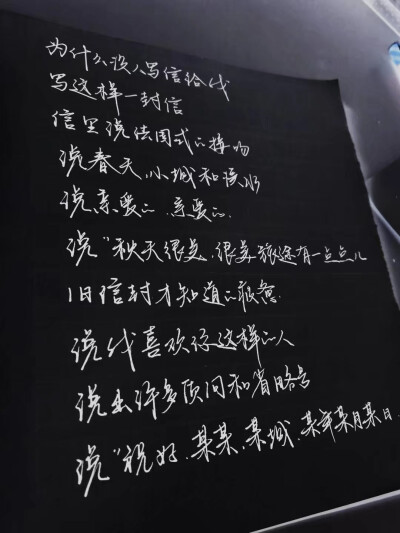 为什么没人写信给我
写这样一封信
信里说法国式的接吻
说春天,小城和误以
说亲爱的,亲爱的,
说"秋天很美,很美旅途有一点点儿
旧信封才知道的疲惫
说我喜欢你这样的人
说出许多质问和省略号
说"祝好,某某,某城,某年某月某日